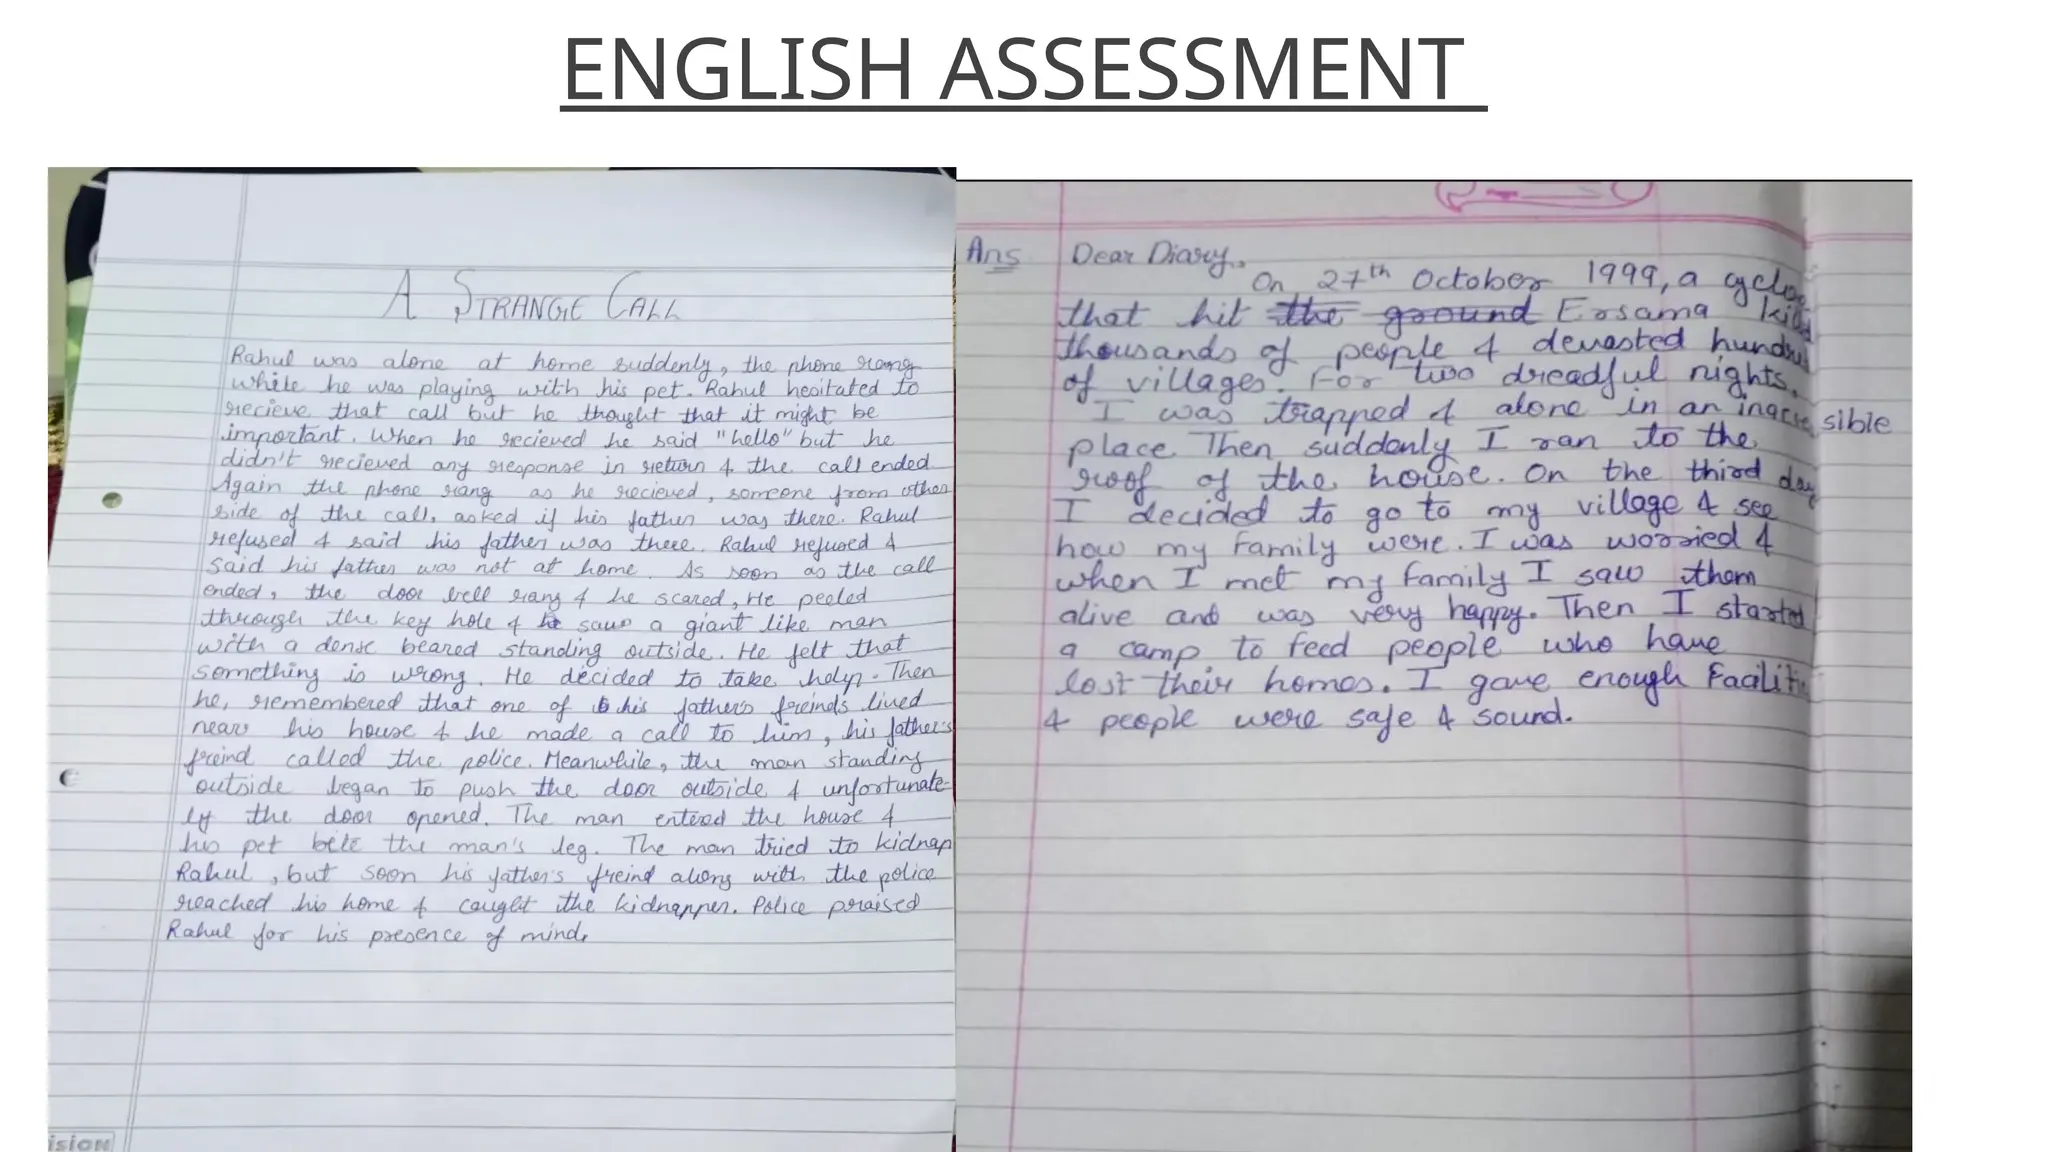 ENGLISH ASSESSMENT
A STRANGE CALL
Rahul was alone at home suddenly, the phone rang
while he was playing with his pet. Rahul hesitated to
recieve that call but he thought that it might be
important. When he recieved he said "hello" but he
didn't recieved any response in return & the call ended
Again the phone rang as he recieved, someone from other
side of the call, asked if his father was there. Rahul
refused & said his father was there. Rahul refused &
said his father was not at home. As soon as the call
ended, the door bell rang & he scared, He peeled
through the key hole & saw a giant like man
with a dense beared standing outside. He felt that
something is wrong. He decided to take help. Then
he, remembered that one of his father's freinds lived
near his house & he made a call to him, his father's
freind called the police. Meanwhile, the man standing
outside began to push the door outside & unfortunate-
ly the door opened. The man entered the house &
his pet bite the man's leg. The man tried to kidnap
Rahul, but soon his father's freind along with the police
reached his home & caught the kidnapper. Police praised
Rahul for his presence of mind.
ision
Ans Dear Diary,
On 27th October 1999, a
that hit the ground Ersama killed
thousands of people & devasted hundreds
of villages. For two dreadful nights.
I was trapped & alone in an inaccessible
place. Then suddenly I ran to the
roof of the house. On the third day
I decided to go to my village & see
how my family were. I was worried &
when I met my family I saw them
alive and was very happy. Then I started
a camp to feed people who have
lost their homes. I gave enough
& people were safe & sound.